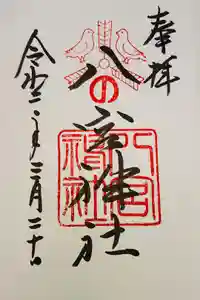 奉拝
八の宮神社
八宮神社
令和二年三月二十日